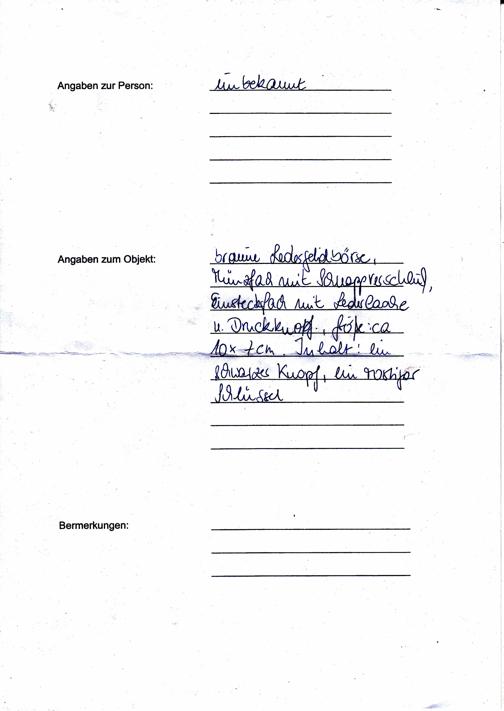 Angaben zur Person: unbekannt
Angaben zum Objekt: braune Ledergeldbörse,
Münzfach mit Schnappverschluß,
Einsteckfach mit Lederlasche
u. Druckknopf, Größe: ca
10x7cm. Inhalt: ein
schwarzer Knopf, ein rostiger
Schlüssel
Bermerkungen: